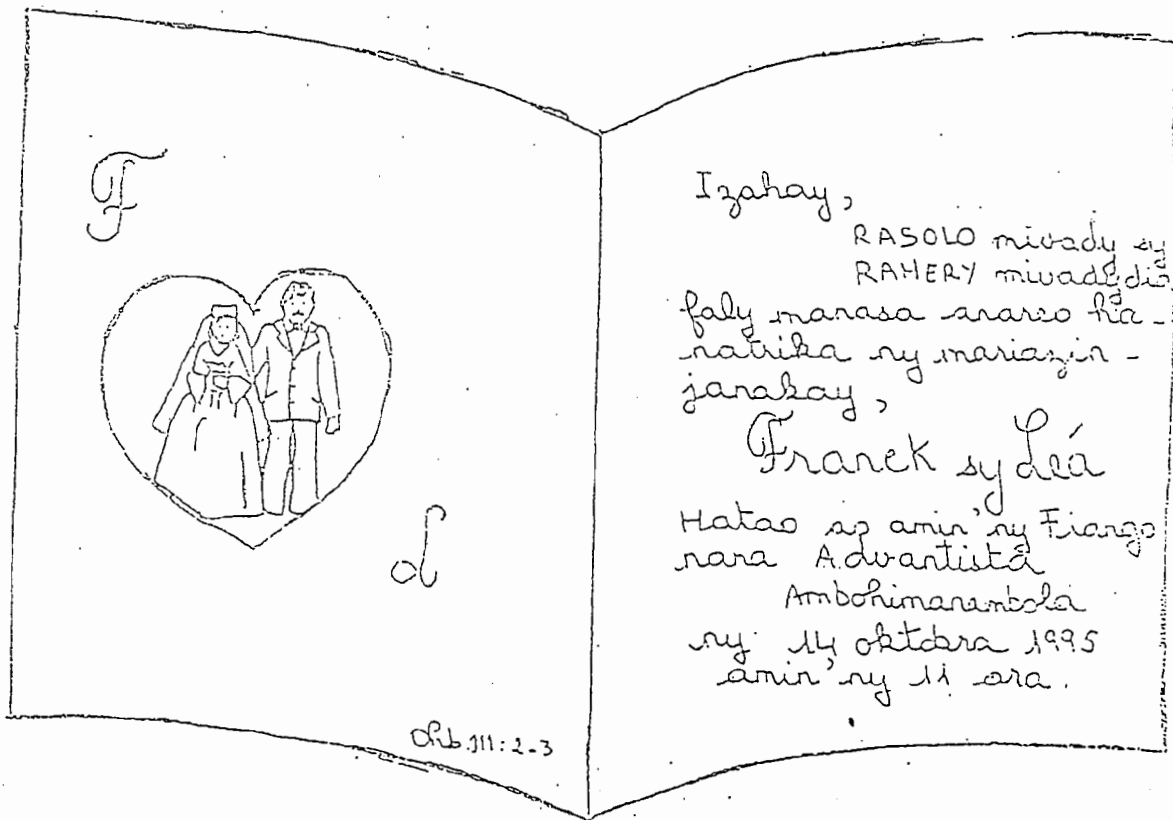 F
L
Izahay,
RASOLO mivady sy
RAHERY mivady dia
faly manasa anareo ha-
natrika ny mariazin-
janakay,
Franck sy Léa
Hatao ao amin'ny Fiango
nana Advantista
ny 14 oktobra 1995
amin'ny 11 ora.
111:2-3